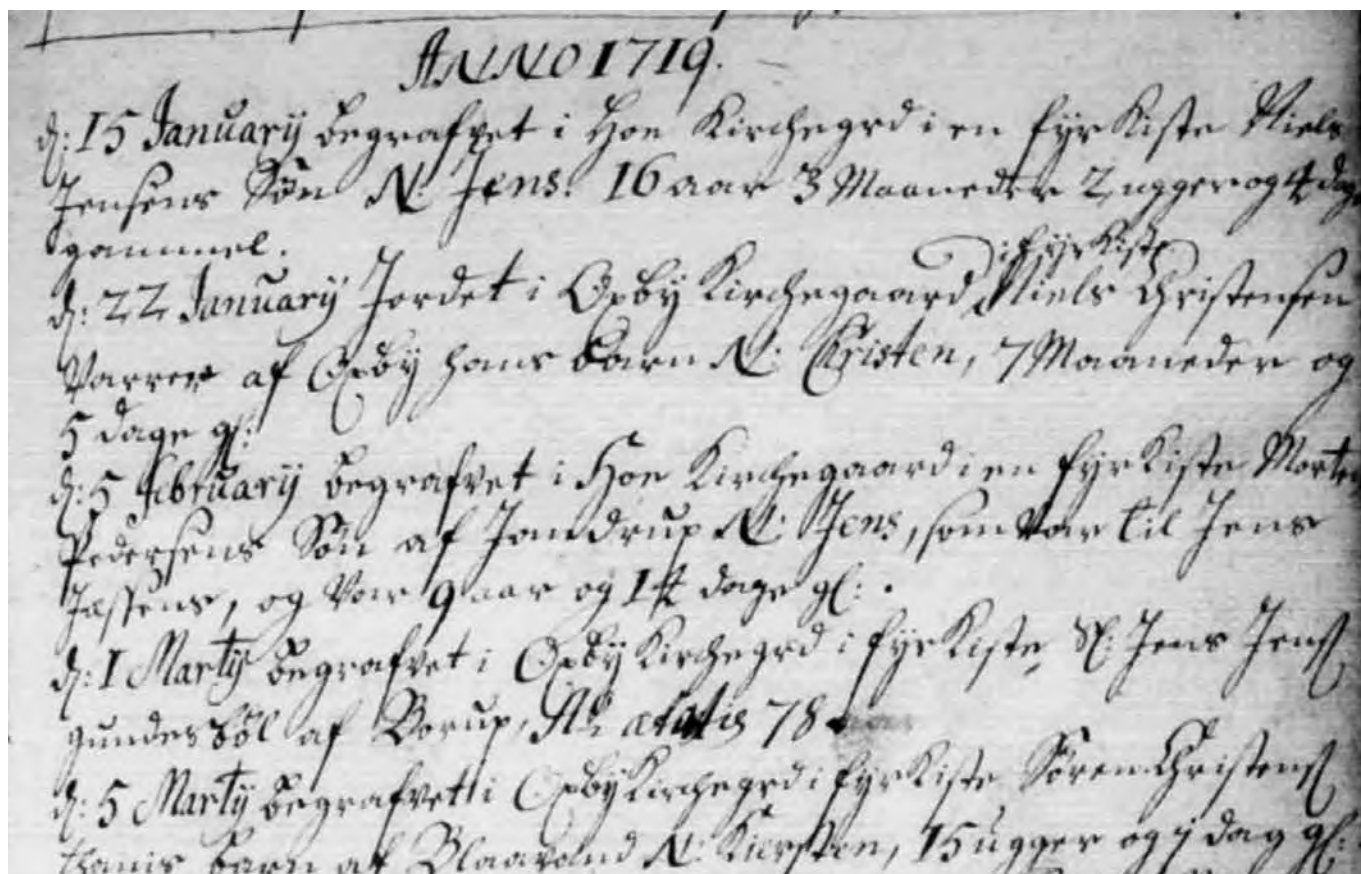 ANNO 1719.
d: 15 January begrafvet i Hoe Kirchegrd i en fyrkiste Niels
Jensens Søn N: Jens. 16 aar 3 Maaneder 2 ugger og 4 dage
gammel.
i fyrkiste
d: 22 January Jordet i Oxby Kirchegaard Niels Christensen
Varrer af Oxby hans barn N: Christen, 7 Maaneder og
5 dage gl:
d: 5 February begrafvet i Hoe Kirchegaard i en fyrkiste Morten
Pedersens Søn af Jandrup N: Jens, som var til Jens
Jessens, og var 9 aar og 14 dage gl:.
d: 1 Marty begrafvet i Oxby Kirchegrd i fyrkiste, Sl: Jens Jens
gundesbøl af Borup, ætatis 78
d: 5 Marty begrafvet i Oxby Kirchegrd i fyrkiste Søren Christens
barn af Blaavand N: Kiersten, 15 ugger og 1 dag gl: